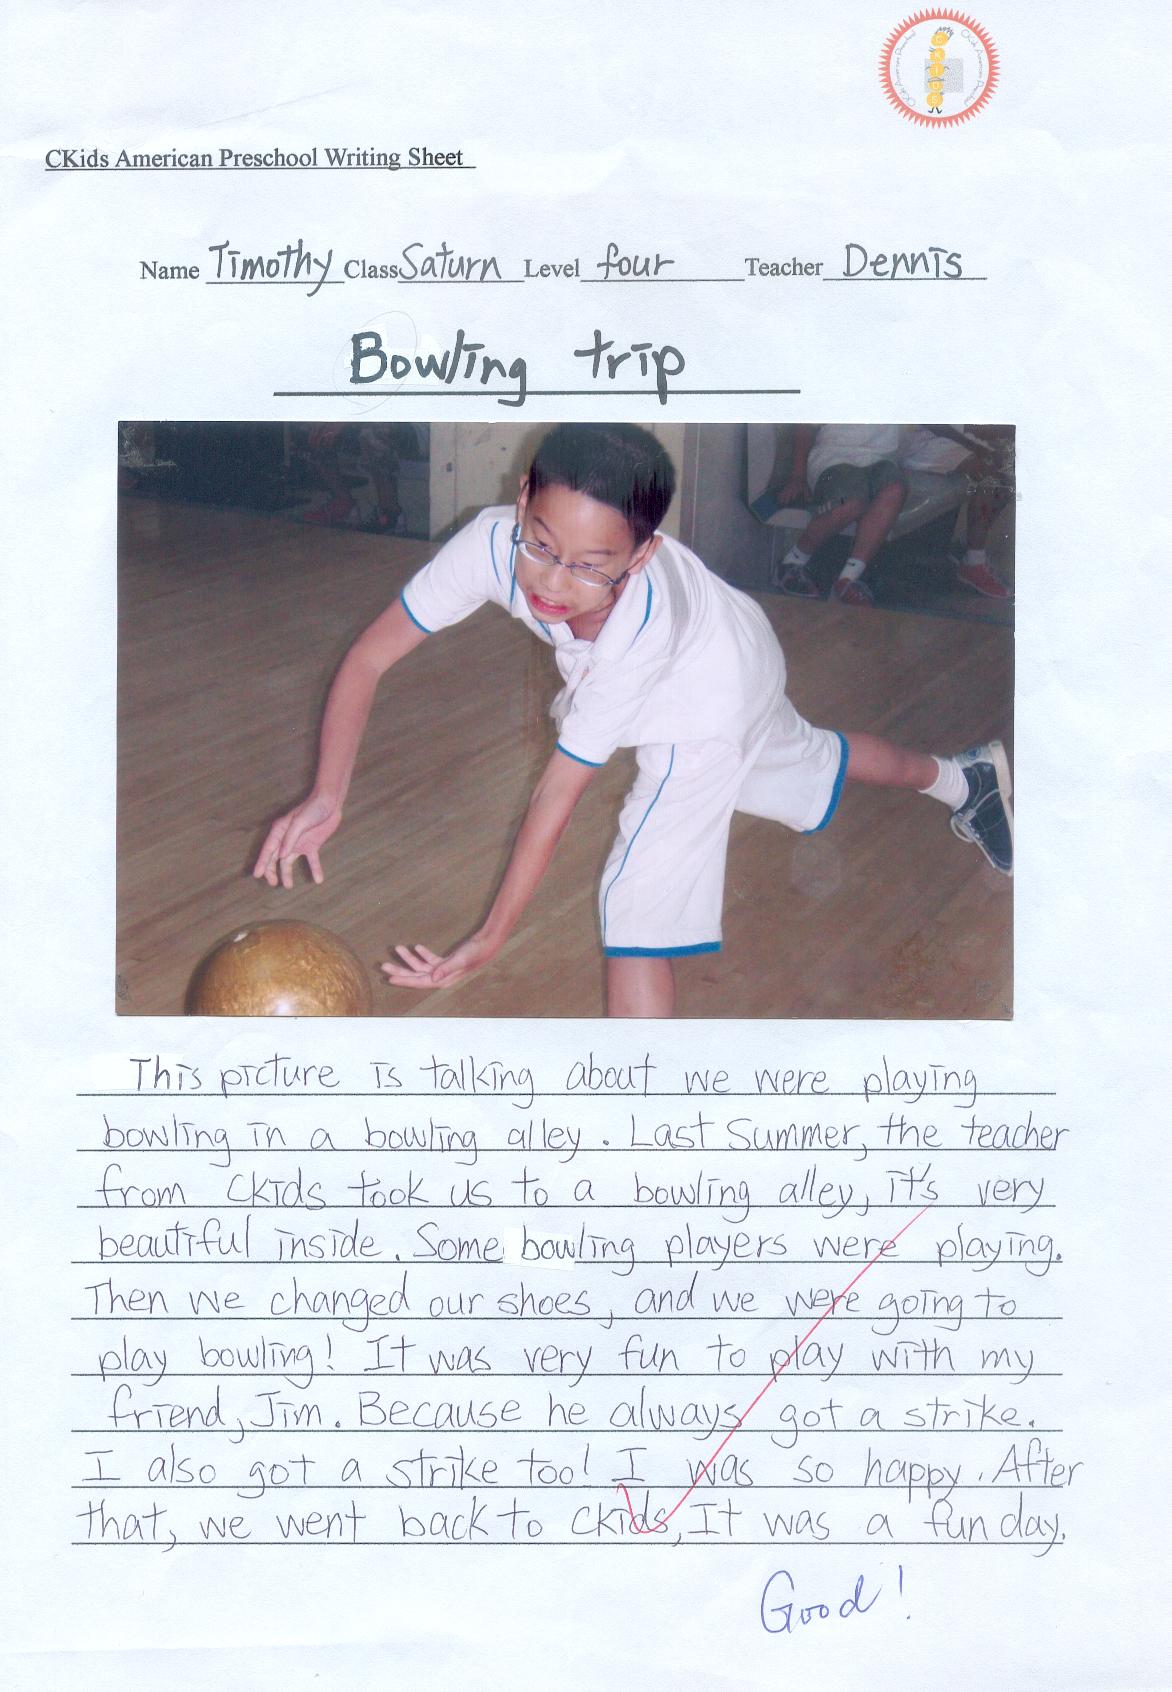 CKids American Preschool Writing Sheet
Name Timothy Class Saturn Level four Teacher Dennis
Bowling trip
This picture is talking about we were playing
bowling in a bowling alley. Last Summer, the teacher
from CKids took us to a bowling alley, it's very
beautiful inside. Some bowling players were playing.
Then we changed our shoes, and we were going to
play bowling! It was very fun to play with my
friend, Jim. Because he always got a strike.
I also got a strike too! I was so happy. After
that, we went back to CKids, It was a fun day.
Good!